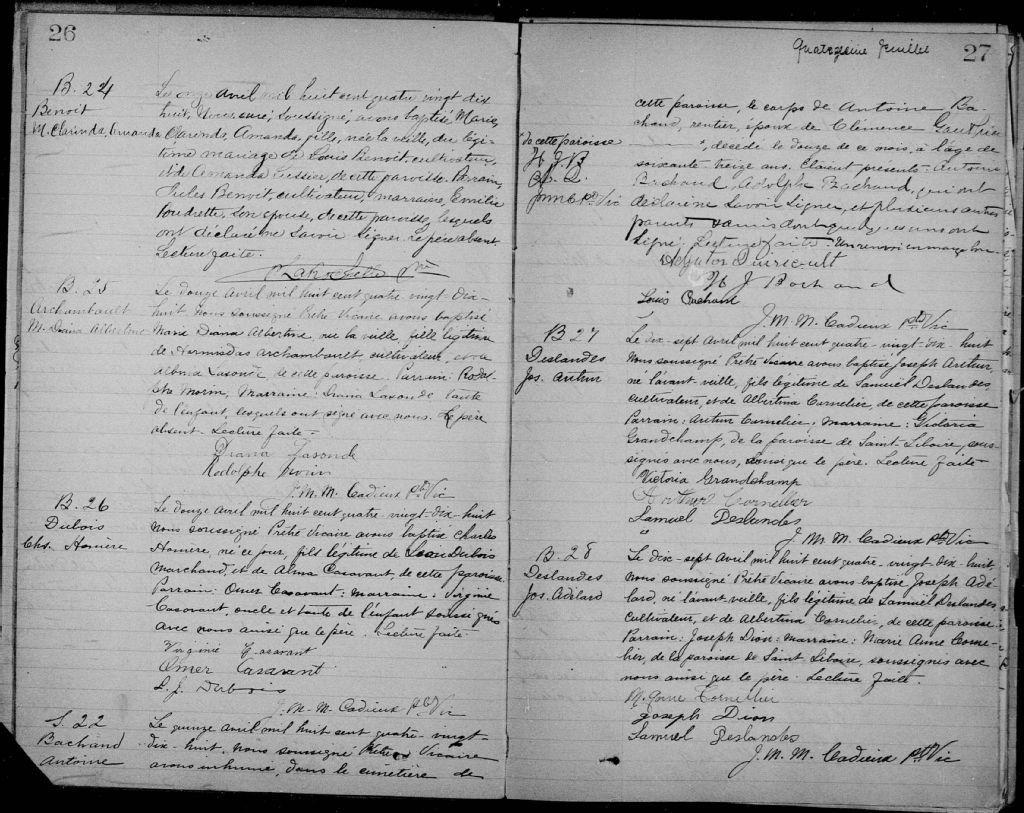 26
B. 24
Benoit
M. Clarinda, Amanda
Le onze Avril mil huit cent quatre vingt dix
huit, Nous, curé, soussigné, avons baptisé Marie,
Clarinda Amanda, fille, née la veille, du légi-
time mariage de Louis Benoit, cultivateur,
et de Amanda Lussier, de cette paroisse. Parrain,
Gilles Benoit, cultivateur, marraine, Emélie
Poudrette, son épouse, de cette paroisse, lesquels
ont déclaré ne savoir signer. Le père absent.
Lecture faite.
B. 25
Archambault
M. Diana Albertine
Le douze Avril mil huit cent quatre vingt-dix-
huit Nous soussigné Prêtre Vicaire avons baptisé
Marie Diana Albertine, née la veille, fille légitime
de Hermidas Archambault, cultivateur, et de
Lasonde, de cette paroisse. Parrain: Rodol-
phe Morin, Marraine: Diana Lasonde tante
de l'enfant, lesquels ont signé avec nous. Le père
absent. Lecture faite.
Diana Lasonde
Rodolphe Morin
J. M. M. Cadieux Ptre Vic
B. 26
Dubois
Chs. Homère
Le douze Avril mil huit cent quatre-vingt-dix-huit
Nous soussigné Prêtre Vicaire avons baptisé Charles
Homère, né ce jour, fils légitime de Dubois
Marchand, et de Alma Casavant, de cette paroisse
Parrain: Omer Casavant: marraine: Virginie
Casavant oncle et tante de l'enfant soussignés
avec nous ainsi que le père. Lecture faite
Virginie Casavant
Omer Casavant
L. J. Dubois
J. M. M. Cadieux Ptre Vic
S. 22
Bachand
Antoine
Le quinze Avril mil huit cent quatre-vingt-
dix-huit, Nous soussigné Prêtre Vicaire
avons inhumé, dans le cimetière de
Quatorzième feuillet
27
cette paroisse, le corps de Antoine Ba-
chand, rentier, époux de Clémence Gauthier
"de cette paroisse
H. J. B
J.M.M.C. Ptre Vic
", décédé le douze de ce mois, à l'âge de
soixante-treize ans. Etaient présents: Antoine
Bachand, Adolphe Bachand, qui ont
déclaré ne savoir signer, et plusieurs autres
parents et amis dont quelques-uns ont
signé. Lecture faite. Un renvoi en marge bon
H J Bachand
Louis Bachand
J. M. M. Cadieux Ptre Vic
B 27
Deslandes
Jos. Arthur
Le dix-sept Avril mil huit cent quatre-vingt-dix-huit
Nous soussigné Prêtre Vicaire avons baptisé Joseph Arthur,
né l'avant-veille, fils légitime de Samuel Deslandes
cultivateur, et de Albertina Cornelier, de cette paroisse
Parrain: Arthur Cornelier, Marraine: Victoria
Grandchamp, de la paroisse de Saint-Liboire, sous-
signés avec nous, ainsi que le père. Lecture faite
Victoria Grandchamp
Arthur Cornelier
Samuel Deslandes
J. M. M. Cadieux Ptre Vic
B. 28
Deslandes
Jos. Adélard
Le dix-sept Avril mil huit cent quatre-vingt-dix-huit,
Nous soussigné Prêtre Vicaire avons baptisé Joseph Adé-
lard, né l'avant-veille, fils légitime de Samuel Deslandes
cultivateur, et de Albertina Cornelier, de cette paroisse.
Parrain: Joseph Dion: marraine: Marie Anne Corne-
lier, de la paroisse de Saint-Liboire, soussignés avec
nous ainsi que le père. Lecture faite.
M. Anne Cornellier
Joseph Dion
Samuel Deslandes
J. M. M. Cadieux Ptre Vic